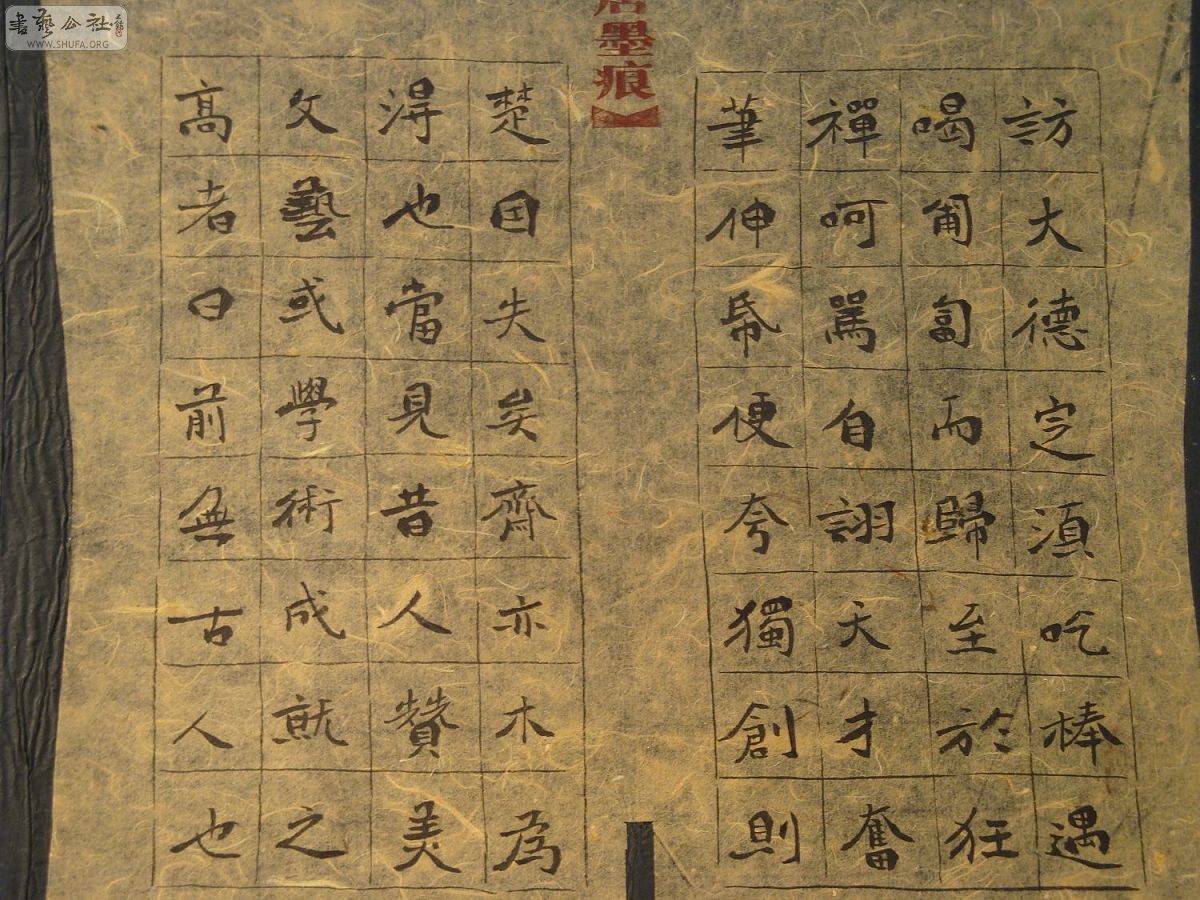 書藝公社
WWW.SHUFA.ORG
墨痕】
訪大德定須吃棒遇
喝匍匐而歸至於狂
禪呵罵自詡天才奮
筆伸帋便夸獨創則
楚固失矣齊亦未為
淂也當見昔人贊美
文藝或學術成就之
高者曰前無古人也